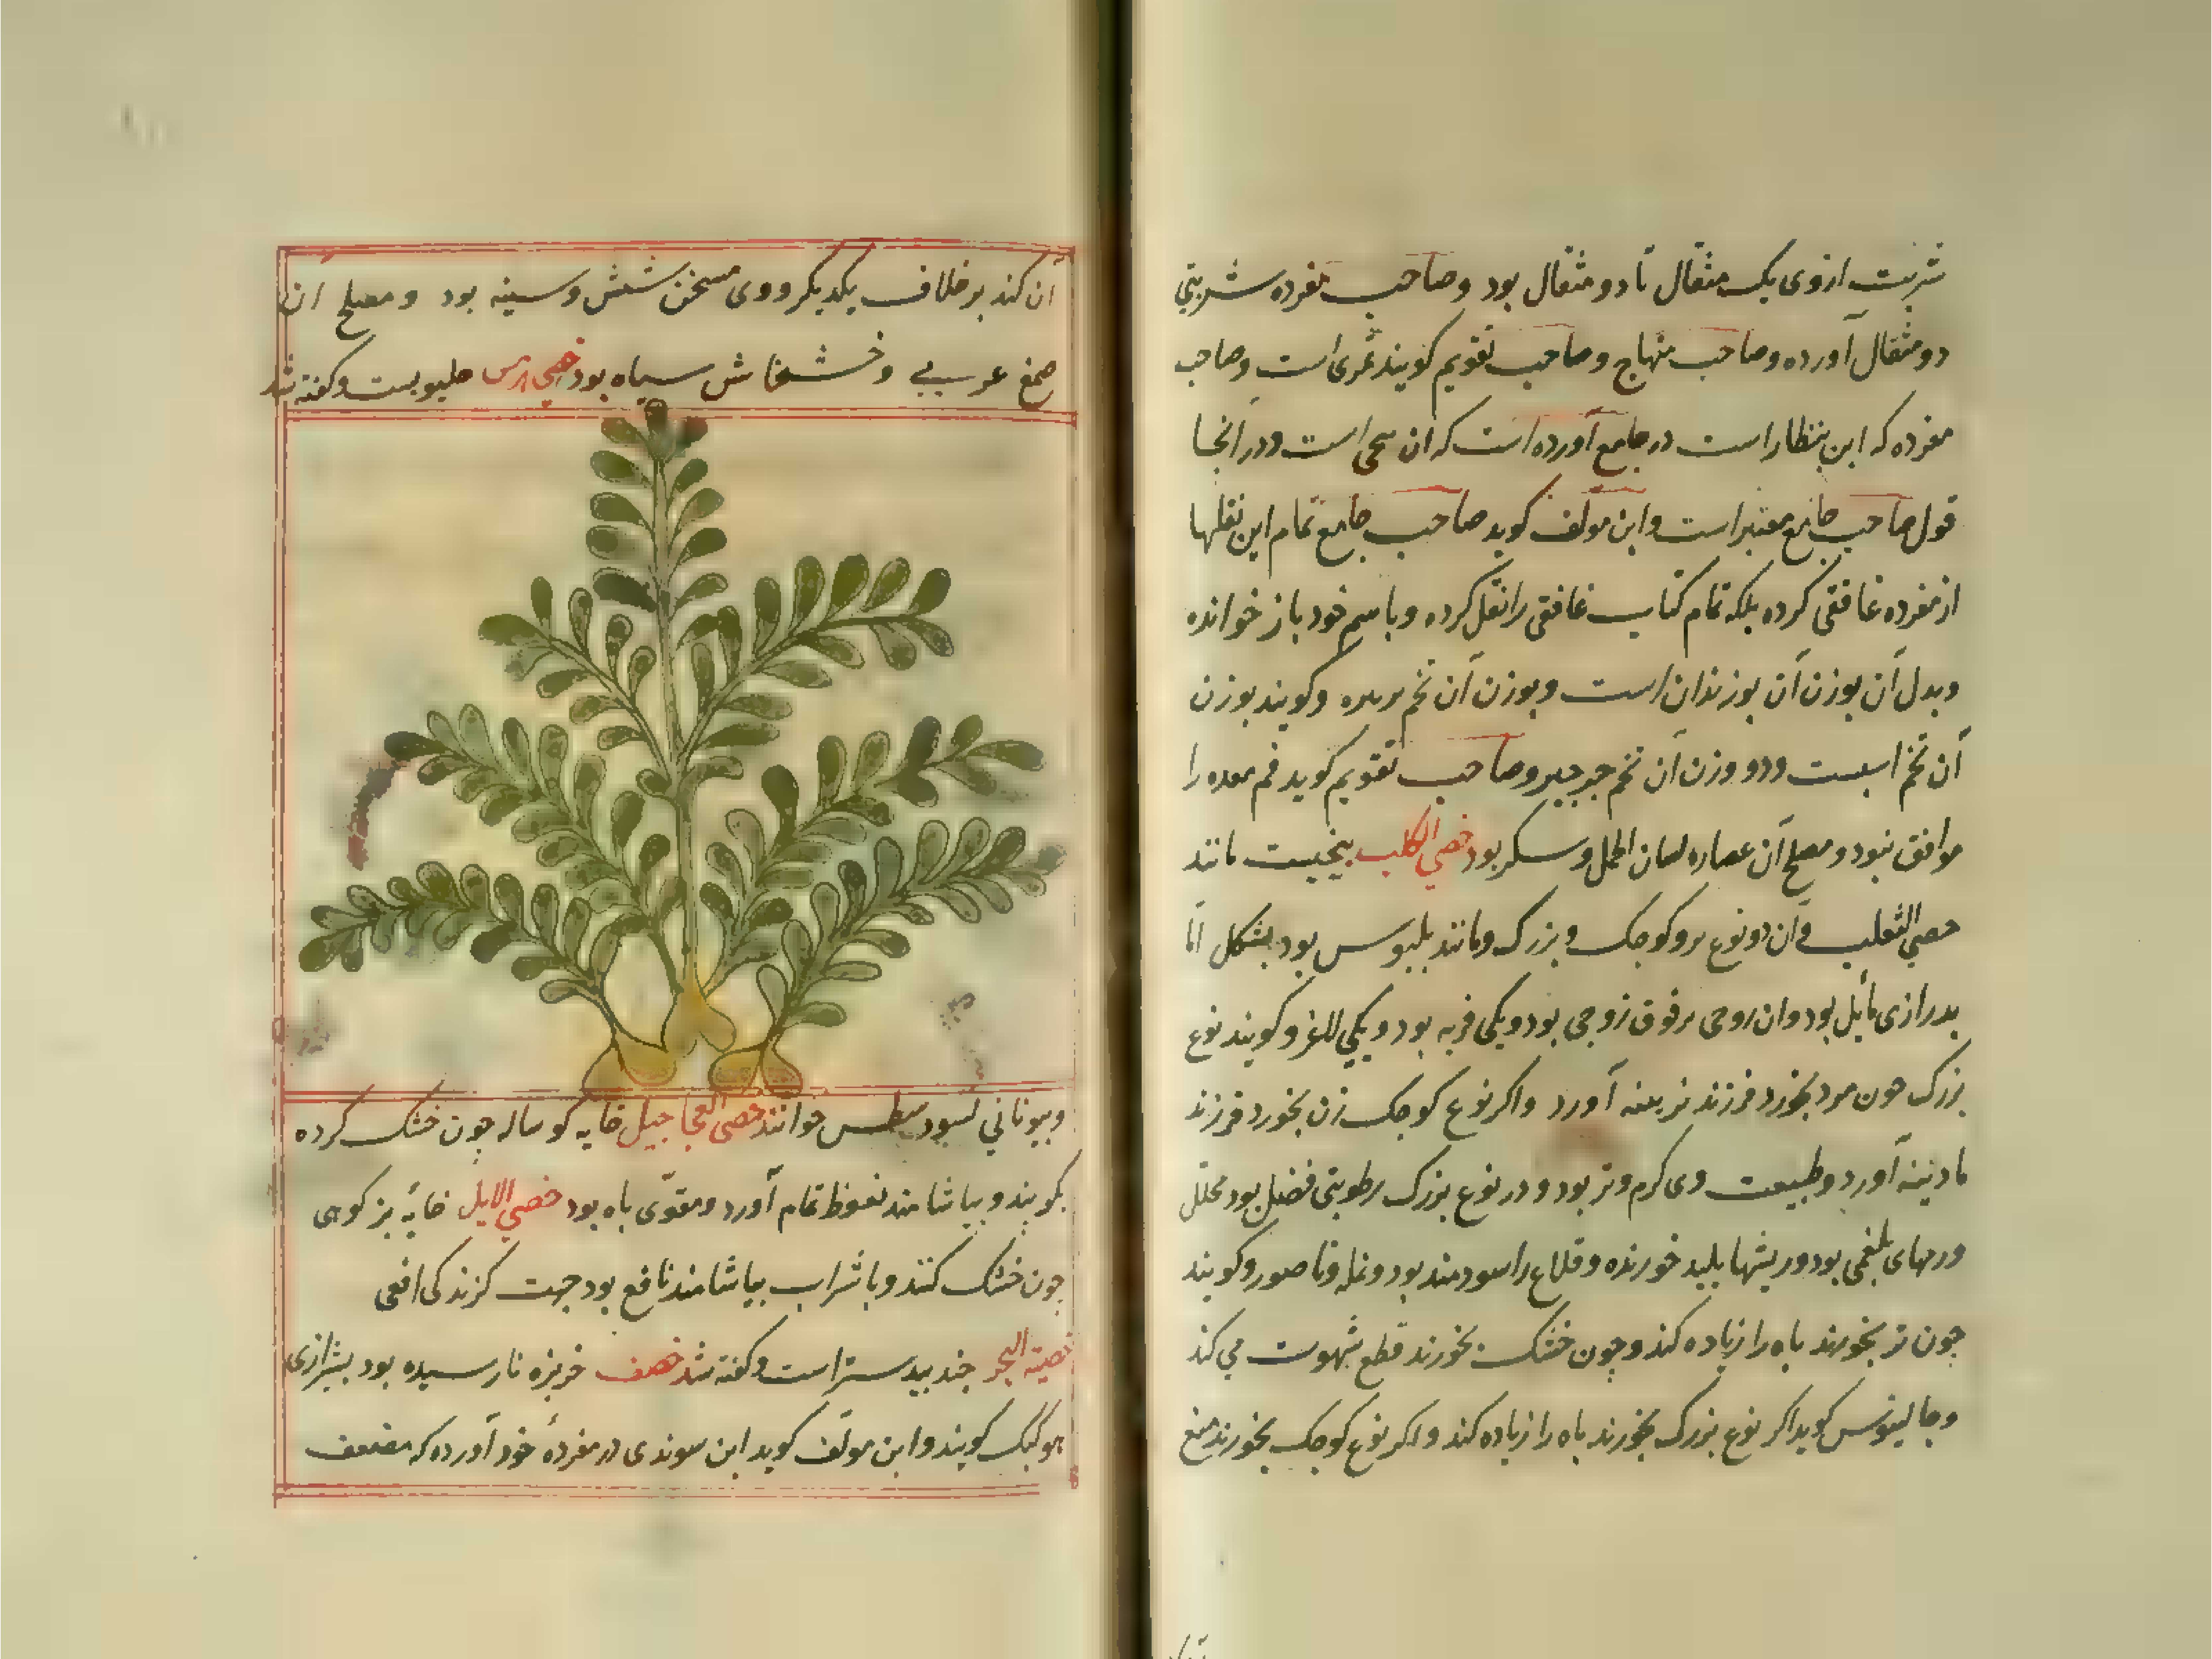 شربت ازوی یک مثقال تا دو مثقال بود وصاحب مفرده شربتی
دو مثقال آورده وصاحب منهاج وصاحب تقویم کویند ثمری است وصاحب
مفرده که ابن بیطار است در جامع آورده است که ان است ودر انجا
قول صاحب جامع معتبر است وابن مولف کوید صاحب جامع تمام این نقلها
از مفرده غافقی کرده بلکه تمام کتاب غافقی را نقل کرده و باسم خود باز خوانده
وبدل آن بوزن آن بوزیدان است وبوزن آن تخم وکویند بوزن
آن تخم اسبست ودو وزن آن تخم جرجیر وصاحب تقویم کوید فم معده را
موافق نبود ومصلح آن عصاره لسان الحمل وسکر بود خصی الکلب بیخیست مانند
خصی الثعلب وآن دو نوع بود کوچک و بزرک ومانند بلبوس بود بشکل اما
بدرازی مایل بود وان زوجی بر فوق زوجی بود ویکی فربه بود ویکی لاغر وکویند نوع
بزرک چون مرد بخورد فرزند نرینه آورد واکر نوع کوچک زن بخورد فرزند
مادینه آورد وطبیعت وی کرم وتر بود ودر نوع بزرک رطوبتی فضلی بود محلل
ورمهای بلغمی بود وریشها پلید خورنده وقلاع را سودمند بود ونمله وناصور وکویند
چون تر بخورند باه را زیاده کند وچون خشک بخورند قطع شهوت می کند
وجالینوس کوید اکر نوع بزرک بخورند باه را زیاده کند واکر نوع کوچک بخورند منع
آن کند بر خلاف یکدیکر ووی مسخن شش وسینه بود ومصلح ان
صمغ عربی وخشخاش سیاه بود خصی هرمس حلبوبست وکفته شد
وبیونانی خوانند خصی العجاجیل خایه کوساله چون خشک کرده
بکویند وبیاشامند نعوظ تمام آورد ومقوّی باه بود خصی الایل خایهٔ بز کوهی
چون خشک کنند وبا شراب بیاشامند نافع بود جهت کزندکی افعی
خصیة البحر جندبیدستر است وکفته شد خصف خربزه نارسیده بود بشیرازی
کویند وابن مولّف کوید ابن سوندی در مفردهٔ خود آورده که